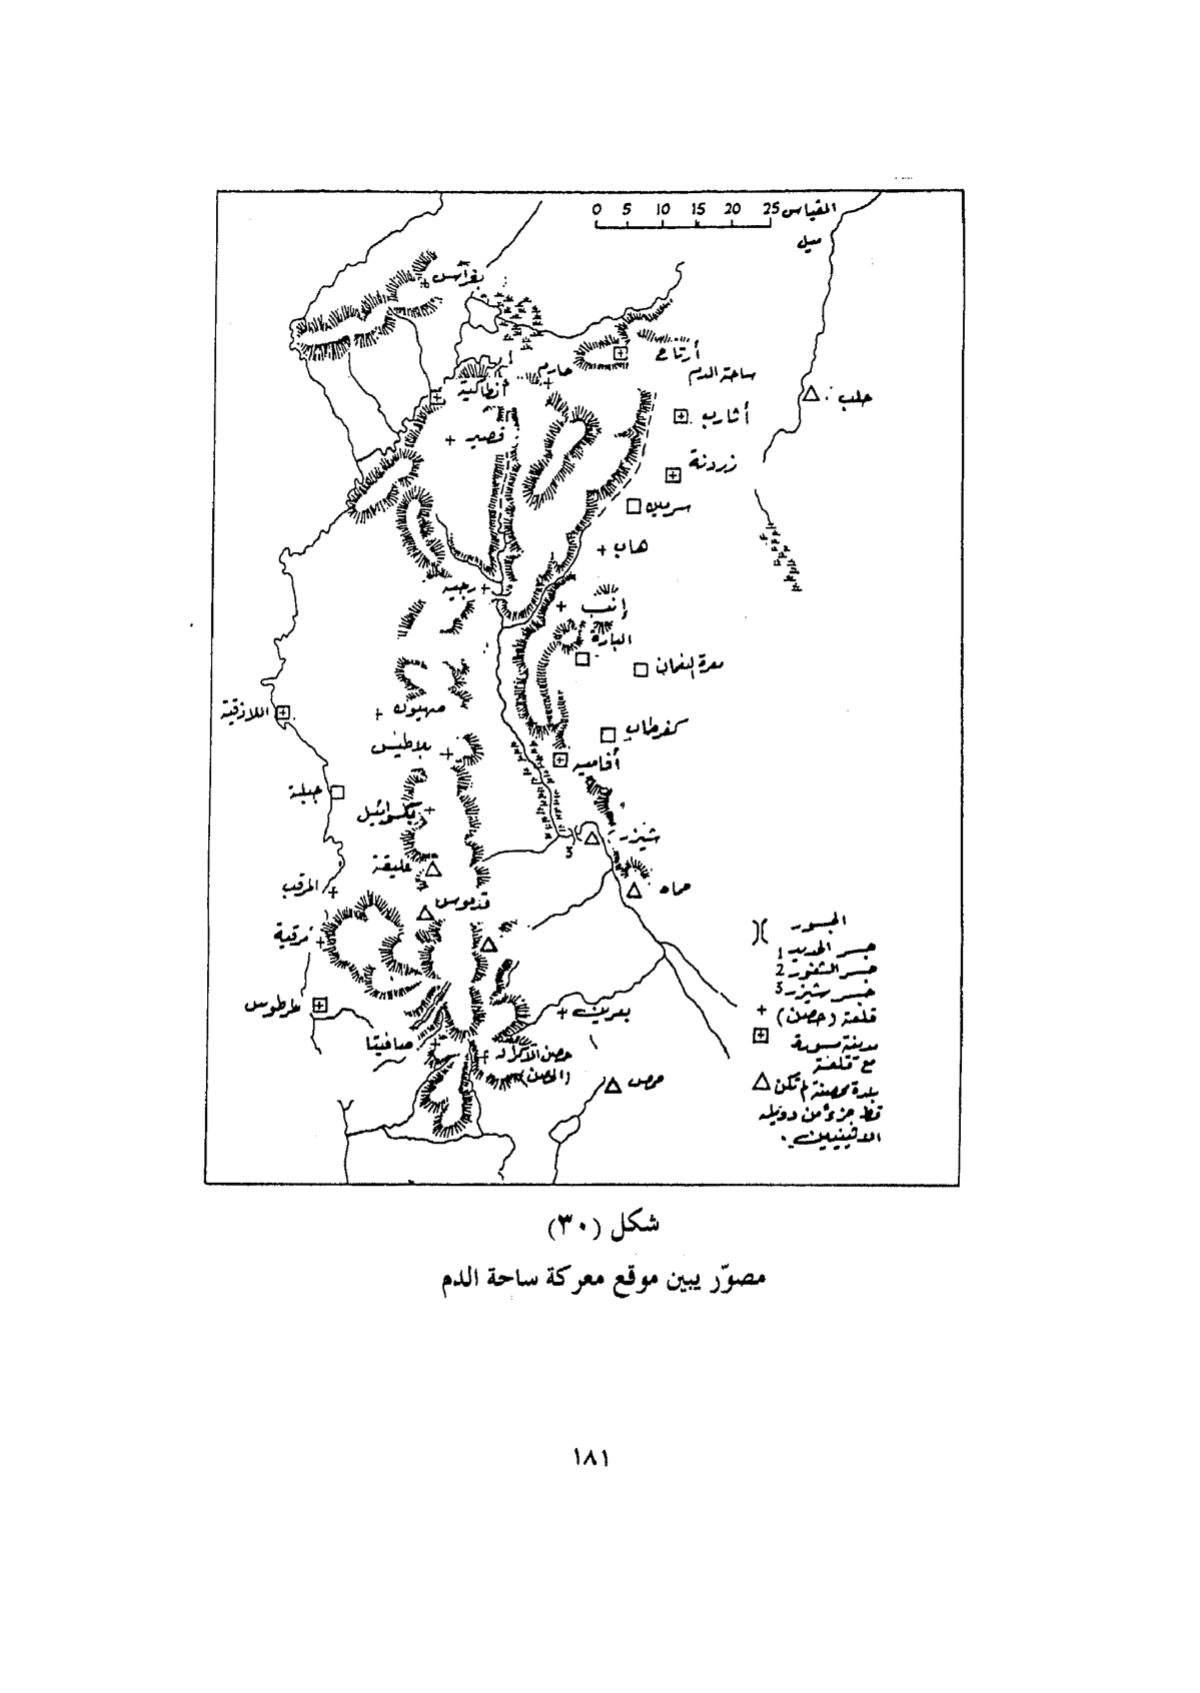 0 5 10 15 20 25 المقياس
ميل
بغراس
أرتاح
حارم
ساحة الدم
أنطاكية
حلب
أثارب
قصير
زردنة
سرمين
هاب
إنب
البارة
معرة النعمان
اللاذقية
صهيون
كفرطاب
بلاطنس
أفاميه
جبلة
بكسرائيل
شيزر
3
عليقة
حماه
المرقب
قدموس
مرقية
طرطوس
بعرين
صافيتا
حصن الأكراد
(الحصن)
حمص
الجسور
جسر الحديد 1
جسر الشغور 2
جسر شيزر 3
قلعة (حصن) +
مدينة مسورة
مع قلعة
بلدة محصنة لم تكن
قط جزء من دويله
اللاتينيين.
شكل (٣٠)
مصوّر يبين موقع معركة ساحة الدم
١٨١